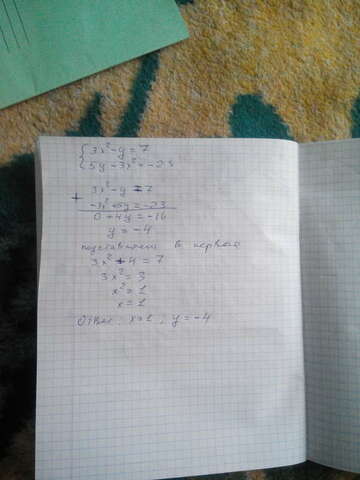 {3x²-y=7
5y-3x²=-23
3x²-y=7
+
-3x²+5y=-23
0+4y=-16
y=-4
подставляем в первое
3x²+4=7
3x²=3
x²=1
x=1
Ответ: x=1; y=-4